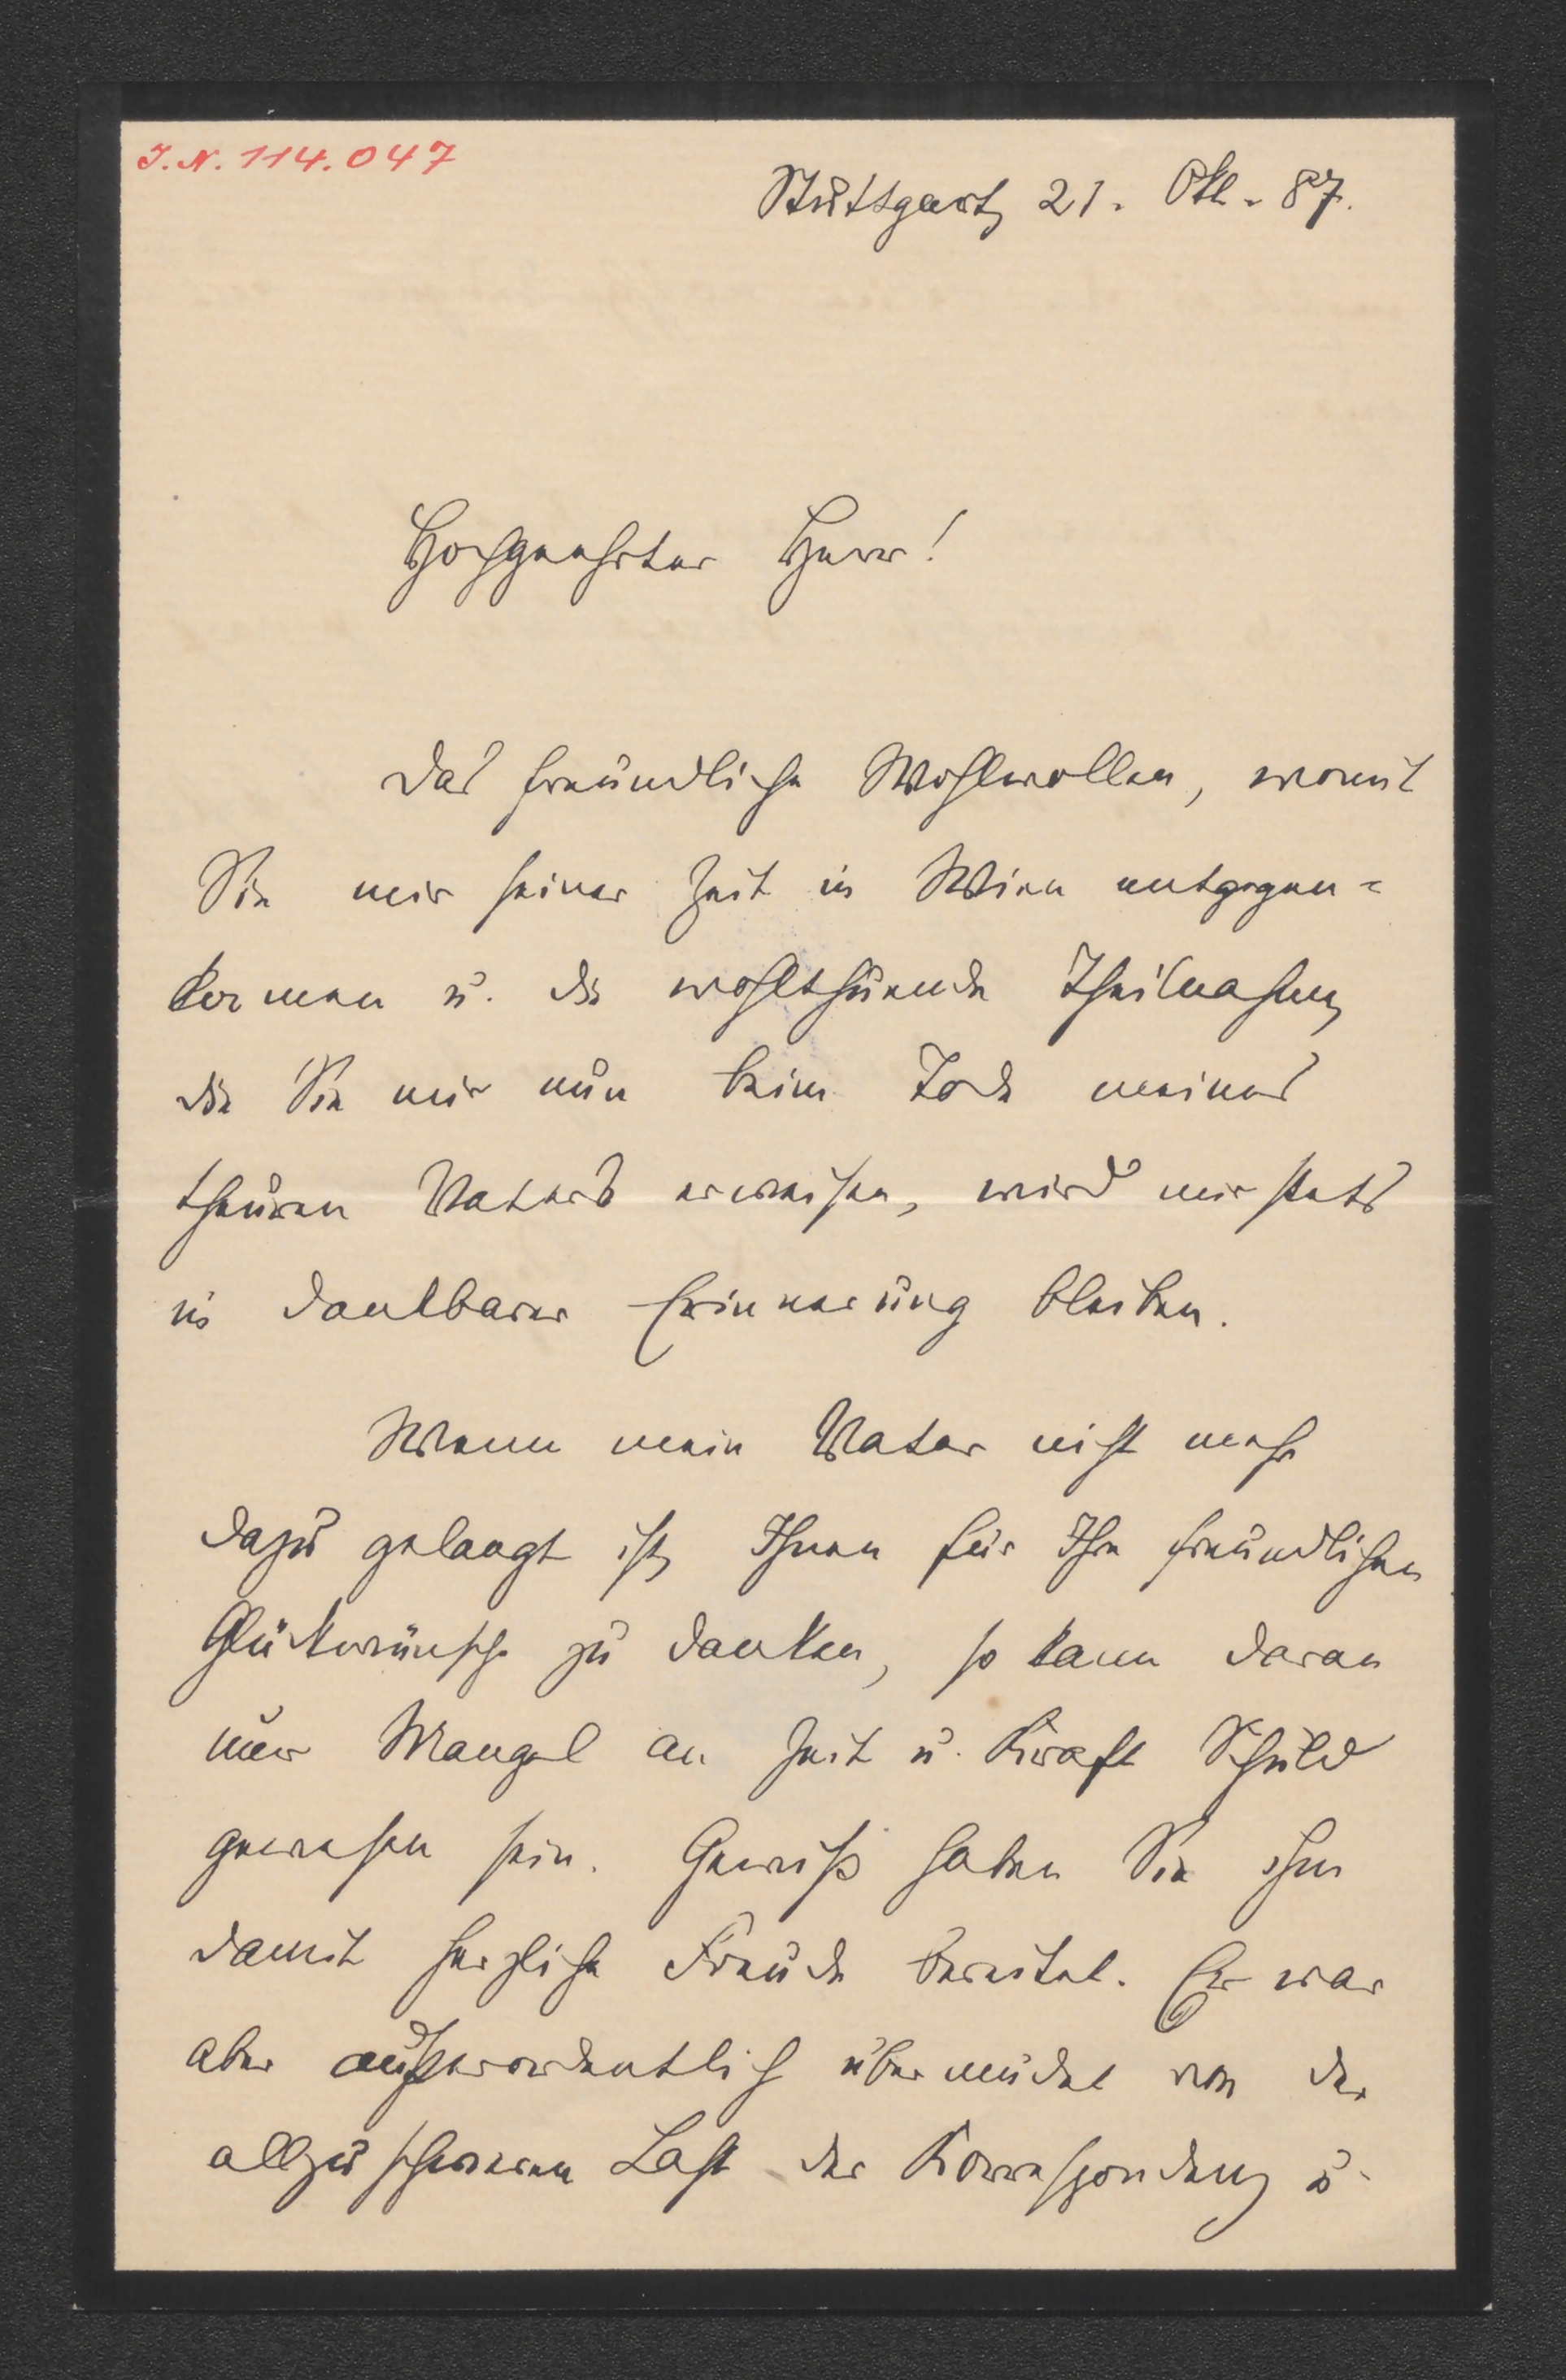 J. N. 114.047
Stuttgart, 21. Okt. 87.
Hochgeehrter Herr!
Das freundliche Wohlwollen, womit
Sie mir seiner Zeit in Wien entgegen-
kamen u. die wohlthuende Theilnahme,
die Sie mir nun beim Tode meines
theuren Vaters erweisen, wird mir stets
in dankbarer Erinnerung bleiben.
Wenn mein Vater nicht mehr
dazu gelangt ist, Ihnen für Ihre freundlichen
Glückwünsche zu danken, so kann daran
nur Mangel an Zeit u. Kraft Schuld
gewesen sein. Gewiß haben Sie ihm
damit herzliche Freude bereitet. Er war
aber außerordentlich übermüdet von der
allzu schweren Last der Korrespondenz u.